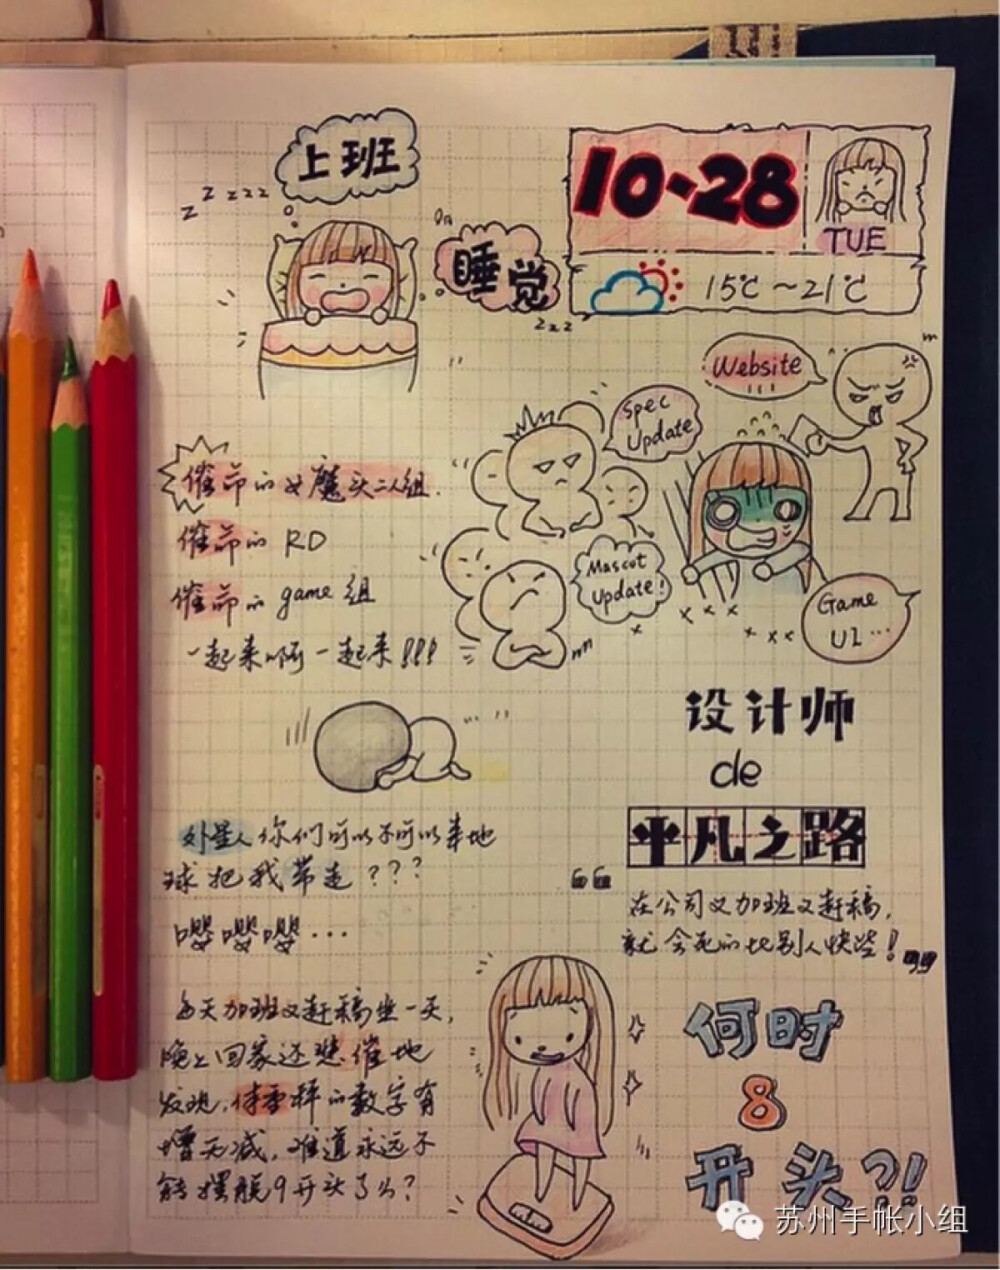 上班
z z z z z
睡觉
z z z
10·28
TUE
15℃~21℃
Website
Spec
Update
Mascot
Update!
Game
UI...
催命的女魔头二人组.
催命的 RD
催命的 game 组
一起来啊一起来!!!
设计师
de
平凡之路
外星人你们可以不可以来地
球把我带走???
嘤嘤嘤...
在公司又加班又赶稿,
就会死的比别人快些!
每天加班又赶稿坐一天,
晚上回家还悲催地
发现,体重秤的数字有
增无减,难道永远不
能摆脱9开头了么?
何时
8
开头?!
苏州手帐小组